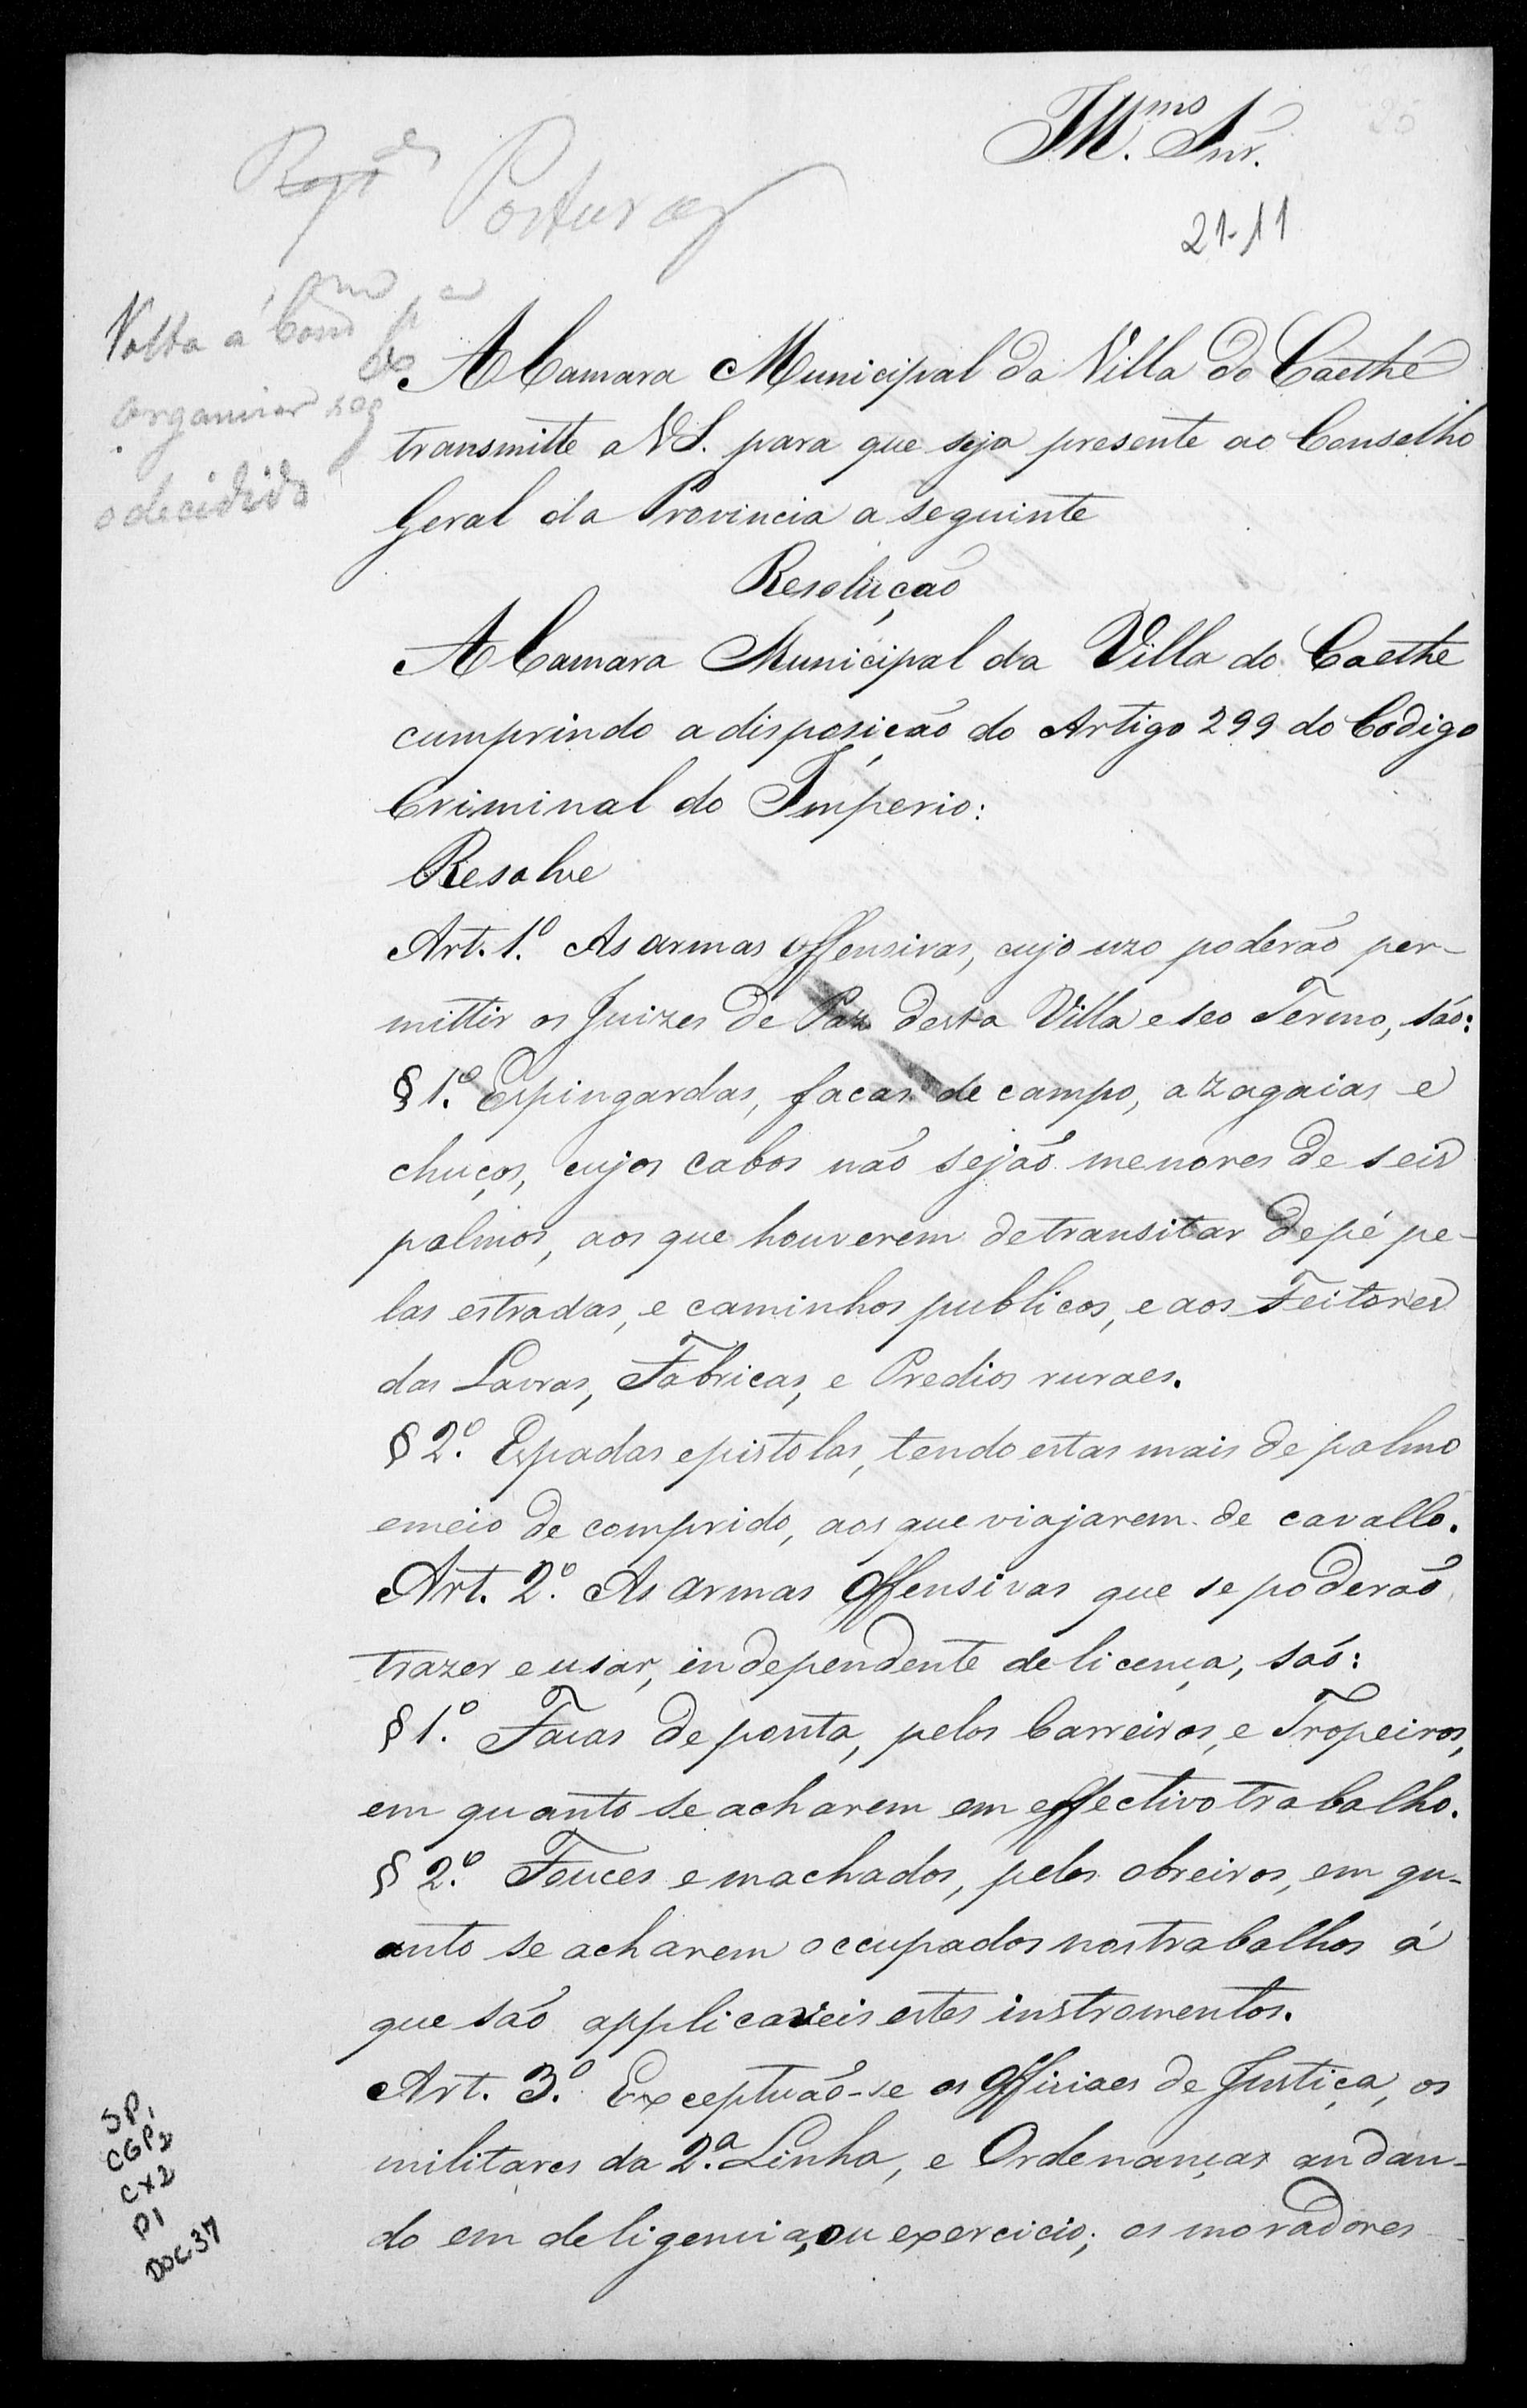 Ill.mo Snr.
21-11
Posturas
Volta á Com.am p.a
de
organizar seg
o decidido
A Camara Municipal da Villa do Caethé
transmitte a VS. para que seja presente ao Conselho
Geral da Provincia a seguinte
Resolução
A Camara Municipal da Villa do Caethe
cumprindo a disposição do Artigo 299 do Codigo
Criminal do Imperio:
Resolve
Art. 1.º As armas offensivas, cujo uzo poderão per-
mittir os Juizes de Paz desta Villa e seo Termo, são:
§ 1.º Espingardas, facas de campo, azagaias e
chuços, cujos cabos não sejão menores de seis
palmos, aos que houverem de transitar de pé pe-
las estradas, e caminhos publicos, e aos Feitores
das Lavras, Fabricas, e Predios ruraes.
§ 2.º Espadas e pistolas, tendo estas mais de palmo
e meio de comprido, aos que viajarem de cavallo.
Art. 2.º As armas offensivas que se poderão
trazer e usar, independente de licença, são:
§ 1.º Facas de ponta, pelos Carreiros, e Tropeiros,
em quanto se acharem em effectivo trabalho.
§ 2.º Fouces e machados, pelos obreiros, em qu-
anto se acharem occupados nos trabalhos á
que são applicaveis estes instromentos.
Art. 3.º Exceptuão-se os Officiaes de Justiça, os
militares da 2.ª Linha, e Ordenanças andan-
do em deligencia, ou exercicio; os moradores
SP,
CGP2
CX2
P1
DOC.37